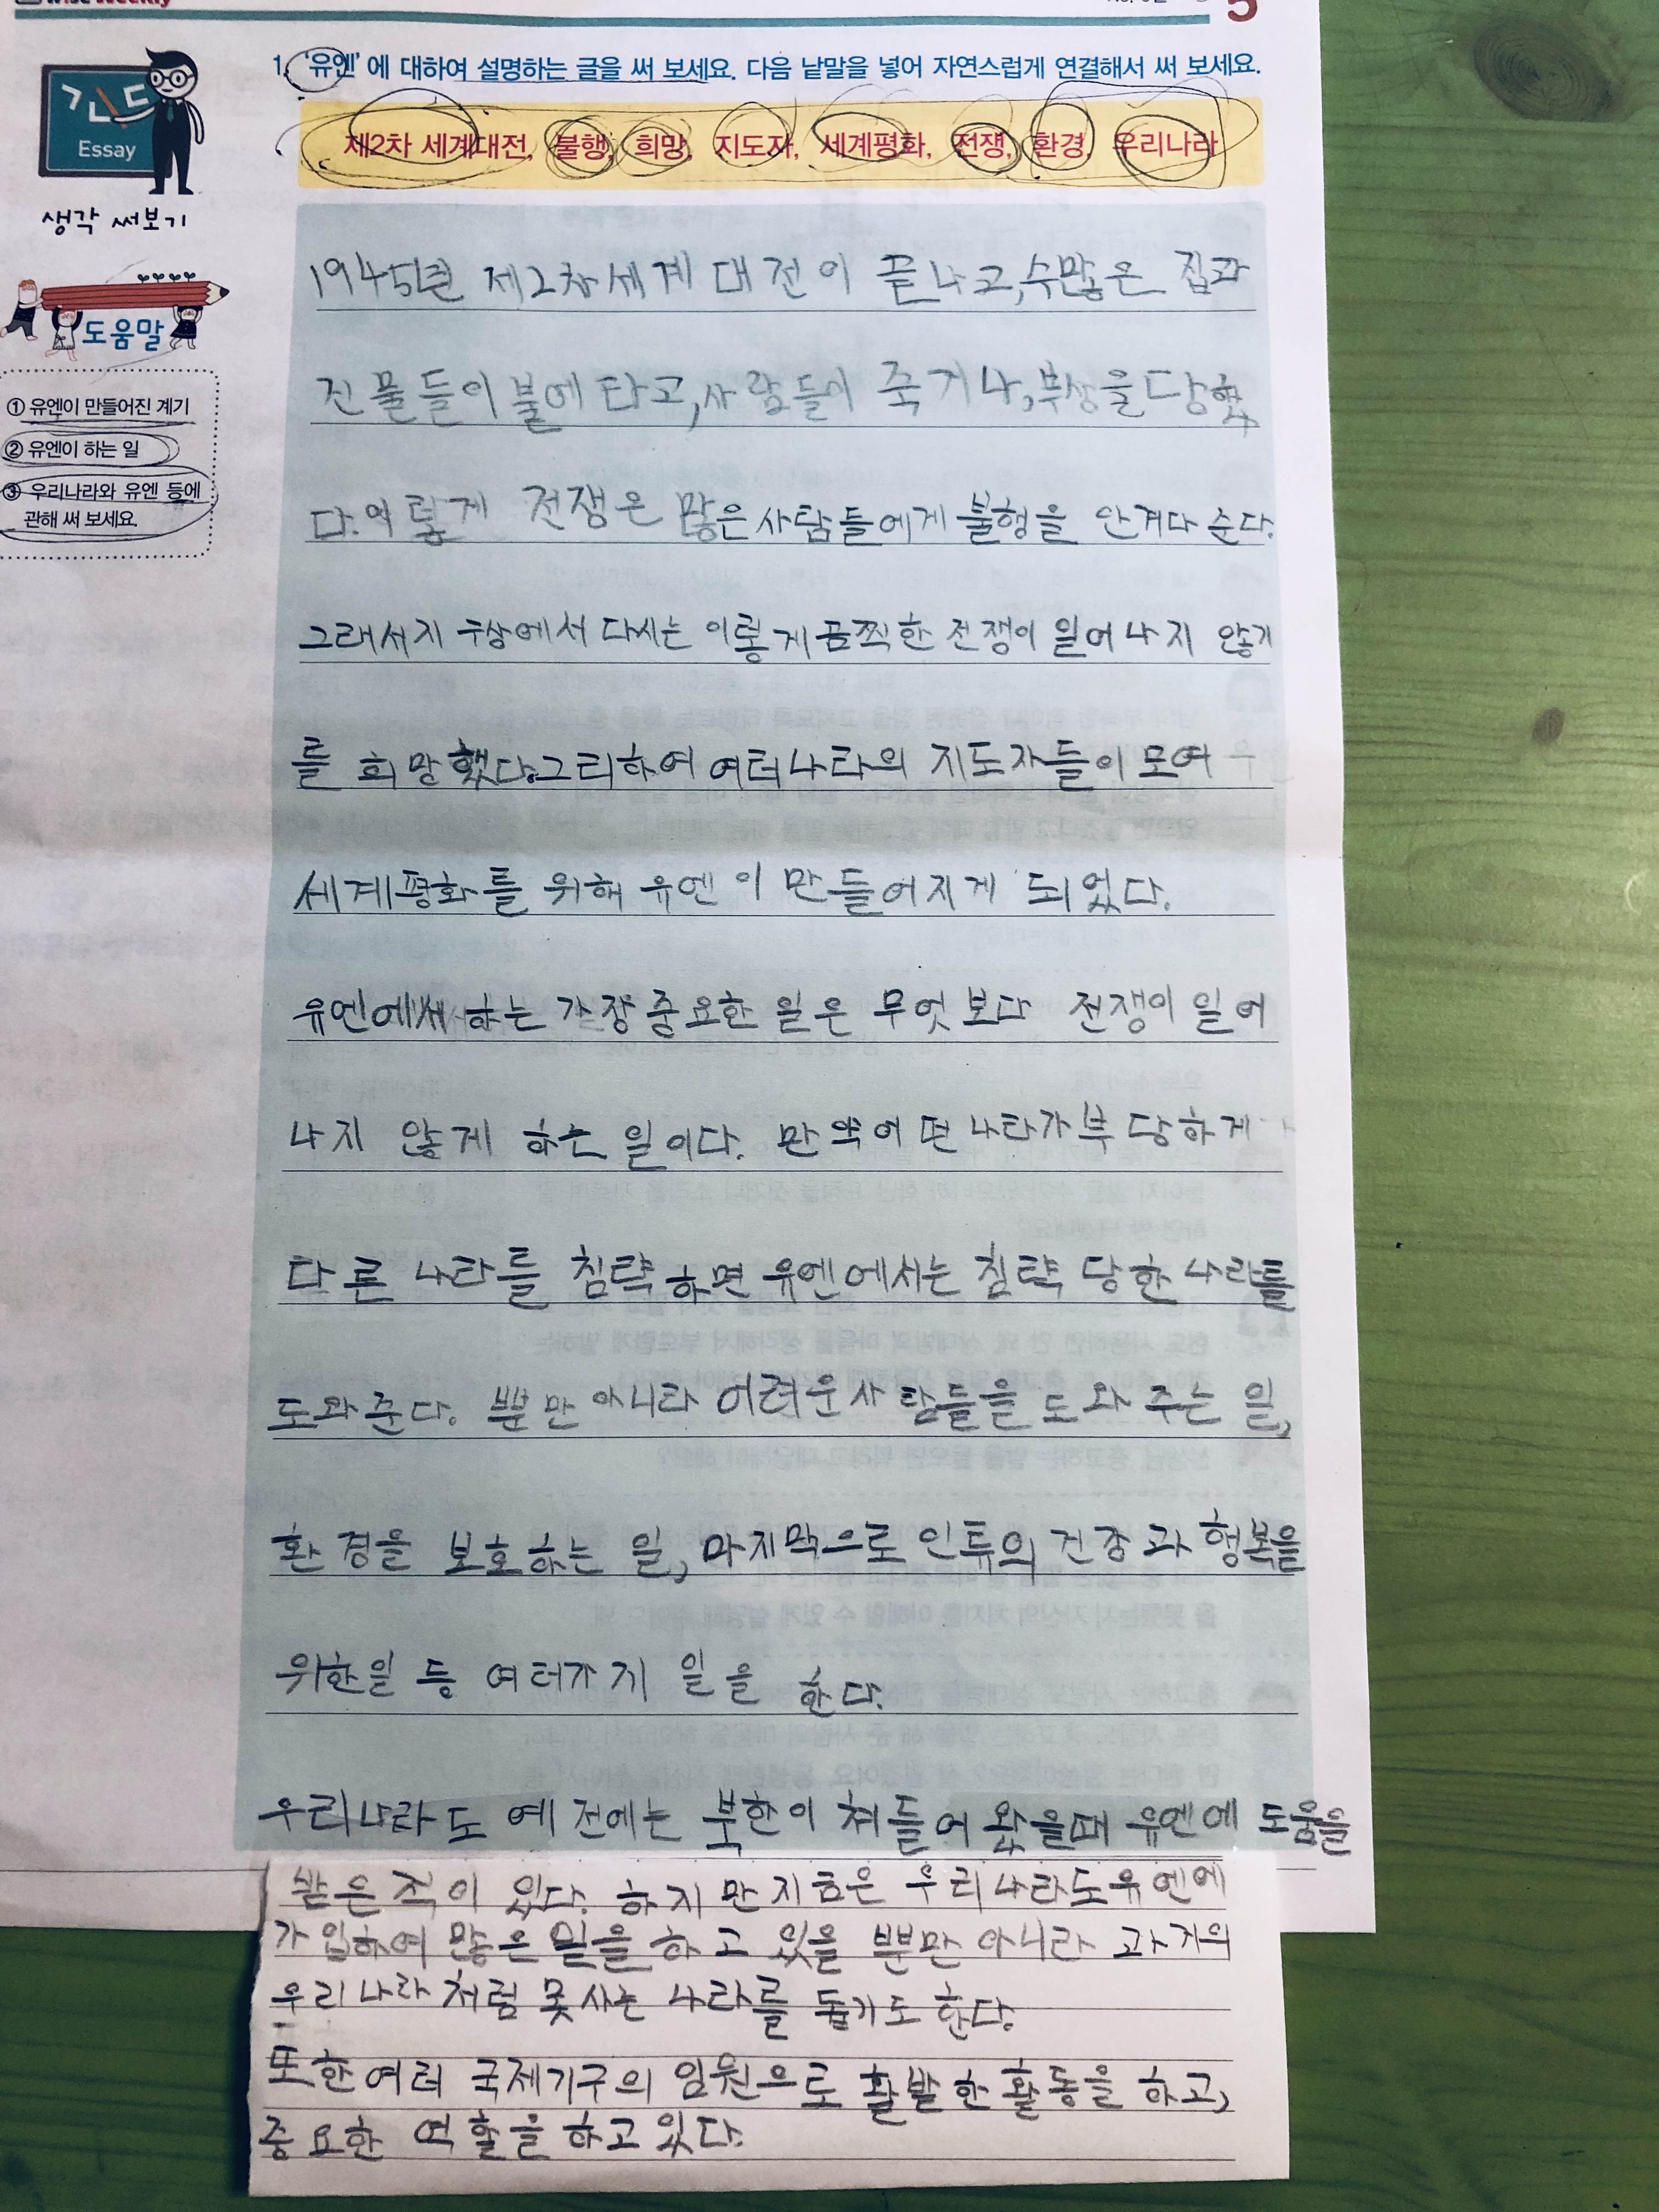 wise Weekly
5
1. '유엔'에 대하여 설명하는 글을 써 보세요. 다음 낱말을 넣어 자연스럽게 연결해서 써 보세요.
Essay
생각 써보기
제2차 세계대전, 불행, 희망, 지도자, 세계평화, 전쟁, 환경, 우리나라
도움말
① 유엔이 만들어진 계기
② 유엔이 하는 일
③ 우리나라와 유엔 등에
관해 써 보세요.
1945년 제2차 세계 대전이 끝나고, 수많은 집과
건물들이 불에 타고, 사람들이 죽거나, 부상을 당했
다. 이렇게 전쟁은 많은 사람들에게 불행을 안겨다 준다.
그래서 지구상에서 다시는 이렇게 끔찍한 전쟁이 일어나지 않기
를 희망했다. 그리하여 여러나라의 지도자들이 모여
세계평화를 위해 유엔이 만들어지게 되었다.
유엔에서 하는 가장 중요한 일은 무엇보다 전쟁이 일어
나지 않게 하는 일이다. 만약 어떤 나라가 부당하게
다른 나라를 침략하면 유엔에서는 침략 당한 나라를
도와준다. 뿐만 아니라 어려운 사람들을 도와 주는 일,
환경을 보호하는 일, 마지막으로 인류의 건강과 행복을
위한일 등 여러가지 일을 한다.
우리나라도 예전에는 북한이 쳐들어 왔을때 유엔에 도움을
받은 적이 있다. 하지만 지금은 우리나라도 유엔에
가입하여 많은 일을 하고 있을 뿐만 아니라 과거의
우리나라처럼 못사는 나라를 돕기도 한다.
또한 여러 국제기구의 임원으로 활발한 활동을 하고,
중요한 역할을 하고 있다.